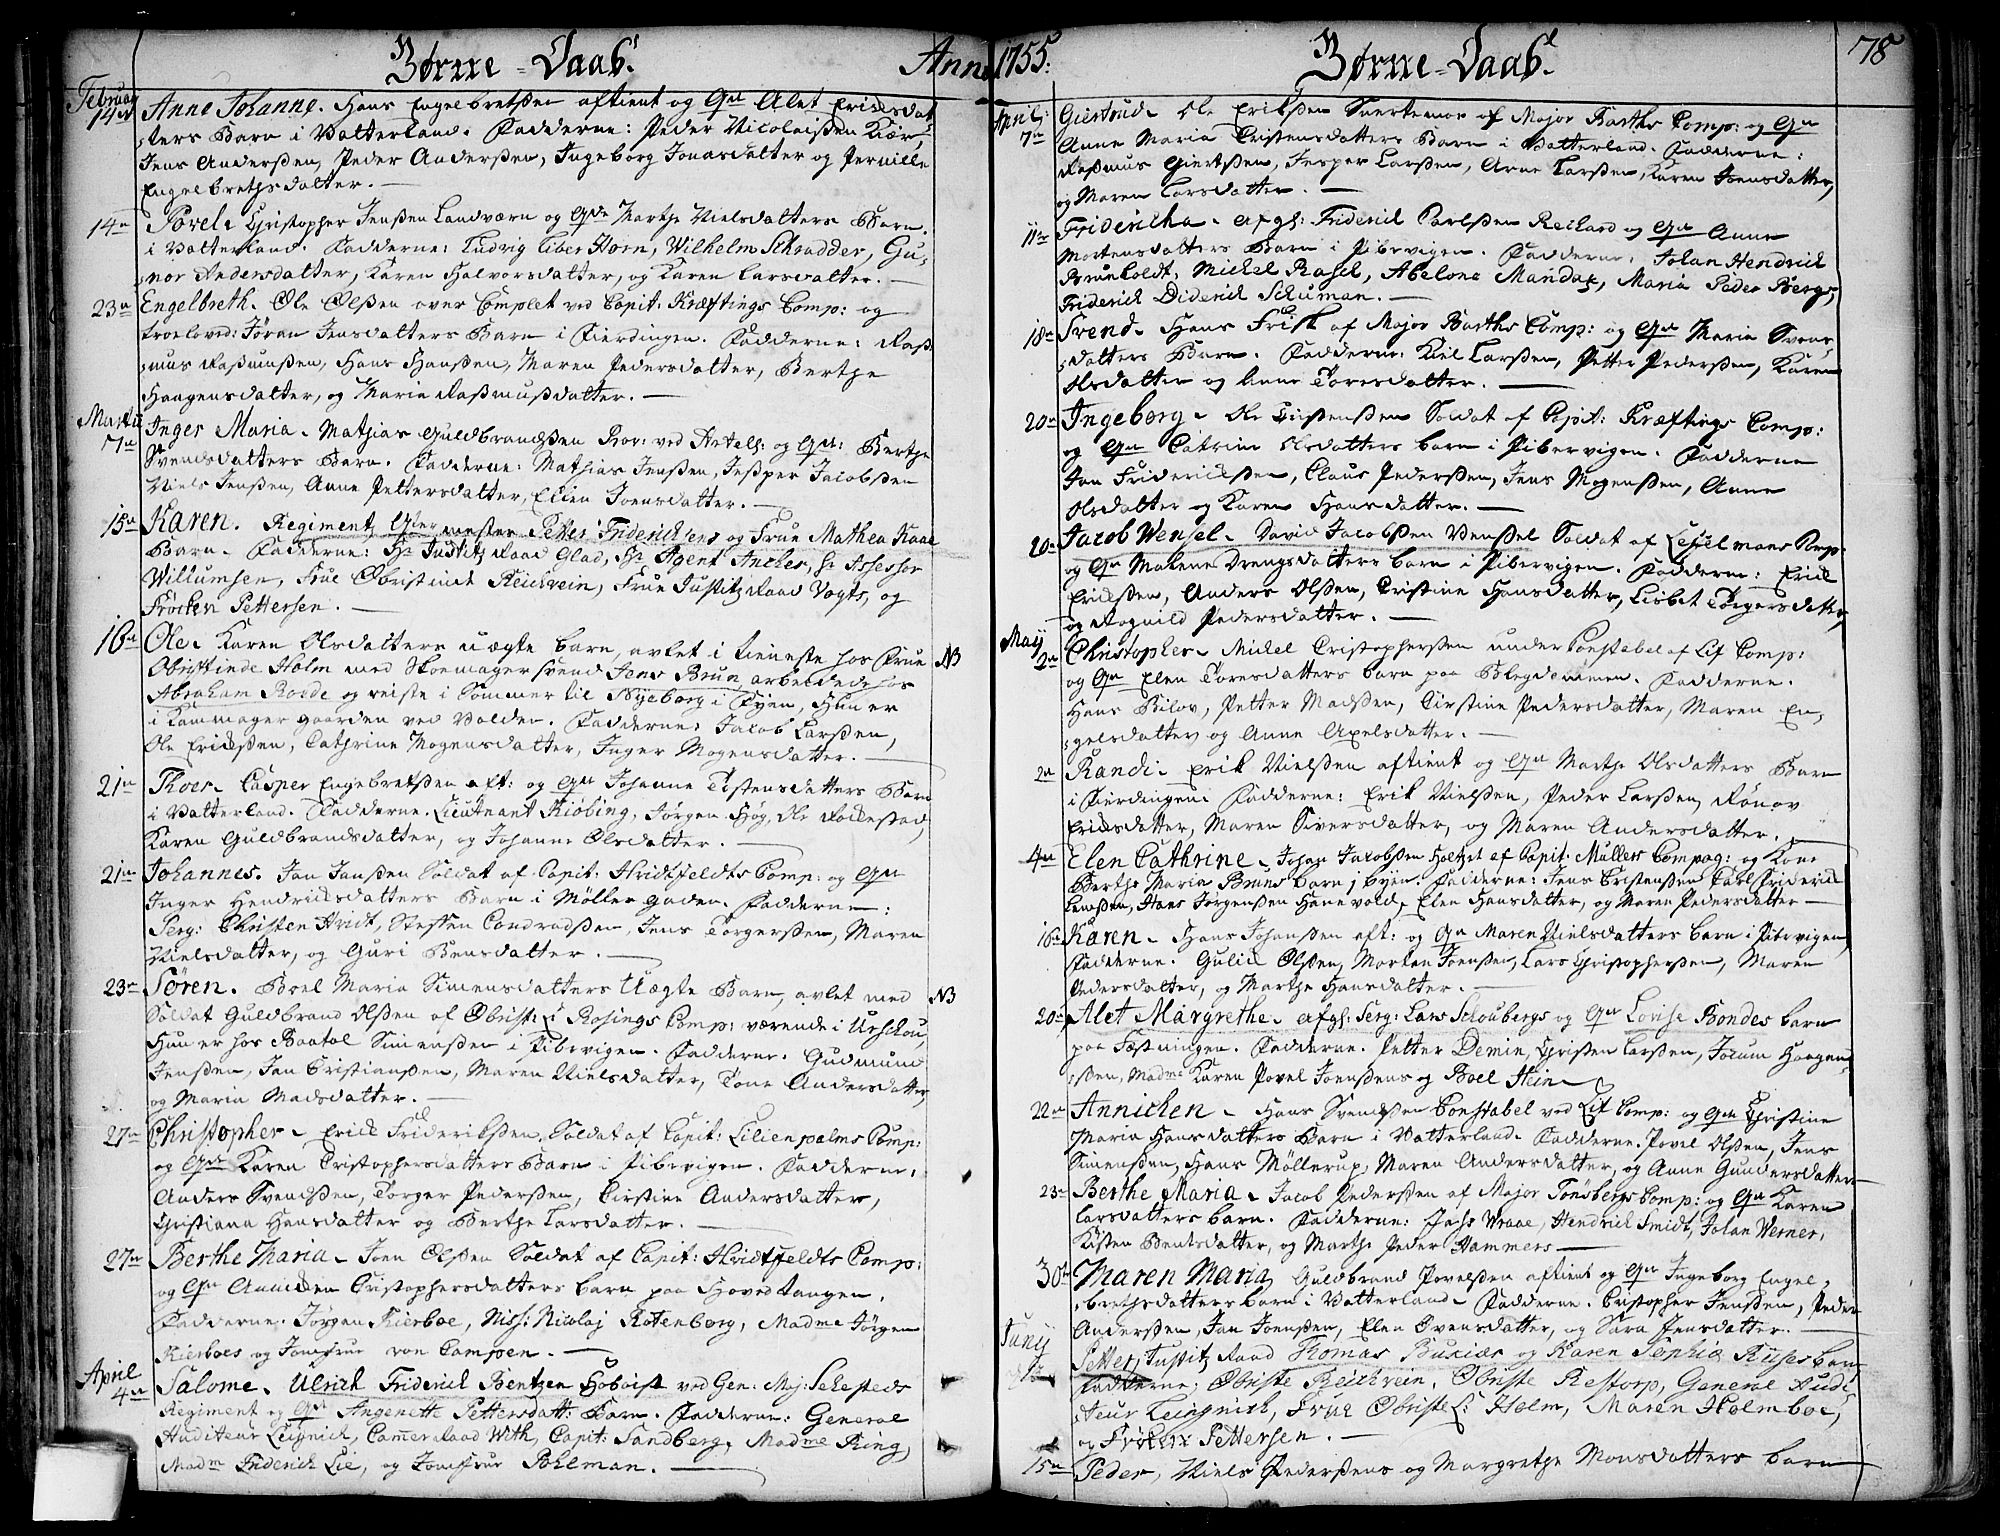 Børne-Daab. Anno
Februarij 14de Anne Johanne. Hans Engelbretßen aftient og Qde Alet Ericksdat-
ters Barn i Vatterland. Fadderne: Peder Nicolaißen Kiær,
Jens Anderßen, Peder Anderßen, Ingeborg Jonasdatter og Pernille
Engelbrethsdatter.
14de Povel. Christopher Jenßen Landværn og Qde Marthe Nielsdatters Barn
i Vatterland. Fadderne: Ludvig Liber Horn, Wilhelm Schradder, Gu-
nor Andersdatter, Karen Halvorsdatter, og Karen Larsdatter.
23de Engelbreth. Ole Olßen over Complet ved Capit: Kræftings Comp: og
troeloved: Jøran Jensdatters Barn i Fierdingen. Fadderne: Raß-
mus Raßmusßen, Hans Hanßen, Maren Pedersdatter, Berthe
Haagensdatter, og Maria Raßmusdatter.
Martij 7de Inger Maria. Mathias Guldbrandßen ved Artell: og Qde: Berthe
Svendsdatters Barn. Fadderne: Mathias Jenßen, Jesper Jacobßen
Niels Jenßen, Anne Pettersdatter, Elien Joensdatter.
15de Karen. Regiment Qter mester Petter Fridericksens og Frue Mathea Kaae
Barn. Fadderne: Hr Justitz Raad Glad, Hr Agent Ancher, Hr Assessor
Willumsen, Frue Obristinde Reichvein, Frue Justitz Raad Vogts, og
Frøcken Pettersen.
16de Ole. Karen Olsdatters uægte barn, avlet i tieneste hos Frue NB
Obristinde Holm med Skomagersvend Jens Brun, arbeidede hos
Abraham Rodde og reiste i Sommer til Nyeborg i Fyen, Hun er
i Kammager gaarden ved Volden. Fadderne: Jacob Larßen,
Ole Erickßen, Cathrine Mogensdatter, Inger Mogensdatter.
21de Thoer. Casper Engebretßen aft: og Qde Johanne Tostensdatters Barn
i Vatterland. Fadderne. Lieutnant Kiøbing, Jørgen Høg, Ole Rockestad,
Karen Guldbrandsdatter, og Johanne Olsdatter.
21de Johannes. Jan Janßen Soldat af Capit: Hvidtfeldts Comp: og Qde
Inger Hendricksdatters Barn i Møller gaden. Fadderne:
Serg: Christen Hvidt, Steffen Condradßen, Jens Torgerßen, Maren
Nielsdatter, og Guri Bensdatter.
23de Søren. Boel Maria Simensdatters Uægte Barn, avlet med NB
Soldat Guldbrand Olßen af Obrist: L: Rosings Comp: værende i Urskou,
Hun er hos Baatol Simenßen i Pibervigen. Fadderne: Gudmund
Jenßen, Jan Cristianßen, Maren Nielsdatter, Tone Andersdatter,
og Maria Madsdatter.
27de Christopher. Erick Friderikßen, Soldat af Capit: Lilienpalms Comp:
og Qde Karen Cristophersdatters Barn i Pibervigen. Fadderne:
Anders Svendßen, Torger Pederßen, Cirstine Andersdatter,
Christiana Hansdatter og Berthe Larsdatter.
27de Berthe Maria. Joen Olßen Soldat af Capit: Hvidtfeldts Comp:
og Qde Annicken Cristophersdatters barn paa Hovedtangen.
Fadderne. Jørgen Kierboe, Niss: Nicolaj Rotenborg, Madme Jørgen
Kierboes og Jomfrue von Campen.
April 4de Salome. Ulrich Friderich Bentzen Hoboist ved Gen: Maj: Sehesteds
Regiment og Qde Angenette Pettersdatt: Barn. Fadderne: General
Auditeur Leignich, Cammer Raad With, Capit: Sandberg, Madme Ring,
Madm Friderich Lie, og Jomfrue Pohlman.
1755. Børne-Daab. 78
April: 7de Giertrud. Ole Erikßen af Major Barths Comp: og Qde
Anne Maria Cristensdatters Barn i Vatterland. Fadderne:
Raßmus Giertßen, Jesper Larßen, Arne Larßen, Karen Joensdatter,
og Maren Larsdatter.
11de Fridericha. Afgl: Friderich Carlßen Reichard og Qde Anne
Mortensdatters Barn i Pibervigen. Fadderne: Johan Hendrich
Brunholdt, Michel Rasch, Abelone Mandax, Maria Peder Bergs,
Friderich Diderich Schuman.
18de Svend. Hans Frisk af Major Barths Comp: og Qde Maria Svens-
datters Barn. Fadderne: Kiel Larßen, Petter Pederßen, Karen
Olsdatter og Anne Toresdatter.
20de Ingeborg. Ole Cristenßen Soldat af Capit: Kræftings Comp:
og Qde Catrine Olsdatters barn i Pibervigen. Fadderne
Jan Friderickßen, Claus Pederßen, Jens Mogenßen, Anne
Olsdatter og Karen Hansdatter.
20de Jacob Wensel. David Jacobßen Venßel Soldat af Comp:
og Qde Malene Drengsdatters barn i Pibervigen. Fadderne: Erick
Erickßen, Anders Olßen, Cristine Hansdatter, Lisbet Torgersdatter,
og Rognild Pedersdatter.
Maij 2de Christopher. Mickel Cristopherßen under Constabel af Lif Comp:
og Qde Elen Toresdatters barn paa Blegdammen. Fadderne.
Hans Bilov, Petter Madßen, Cirstine Pedersdatter, Maren En-
gelsdatter og Anne Axelsdatter.
2de Randi. Erik Nielßen aftient og Qde Marthe Olsdatters Barn
i Fierdingen. Fadderne: Erik Nielßen, Peder Larßen, Rønov
Ericksdatter, Maren Siversdatter, og Maren Andersdatter.
4de Elen Cathrine. Johan Jacobßen Holtzet af Capit: Müllers Compag: og Kone
Berthe Maria Bruns barn i byen. Fadderne: Jens Cristenßen, Carl Friderich
Lenßen, Hans Jørgenßen Hanevold, Elen Hansdatter, og Maren Pedersdatter
16de Karen. Hans Johanßen aft: og Qde Maren Nielsdatters barn i Pibrvigen,
Fadderne. Gulick Olßen, Morten Joenßen, Lars Christopherßen, Maren
Pedersdatter, og Marthe Hansdatter.
20de Alet Margrethe. Afgl: Serg: Lars Schoubergs og Qde Lovise Bondes barn
paa Fæstningen. Fadderne. Petter Demin, Christen Larßen, Jocum Haagen-
ßen, Madme Karen Povel Joenßens og Boel Stein
22de Annichen. Hans Svendßen Constabel ved Lif Comp: og Qde Christine
Maria Hansdatters Barn i Vatterland. Fadderne. Povel Olßen, Jens
Simenßen, Hans Möllerup, Maren Andersdatter, og Anne Gundersdatter
23de Berthe Maria. Jacob Pederßen af Major Tønsbergs Comp: og Qde Karen
Larsdatters barn. Fadderne: Jahs Vraae, Hendrich Smidt, Johan Werner,
Kisten Bentsdatter, og Marthe Peder Hammers
30te Maren Maria, Guldbrand Povelßen aftient og Qde Ingeborg Engel-
brethsdatters barn i Vatterland. Fadderne. Cristopher Jenßen, Peder
Anderßen, Jan Joenßen, Elen Svensdatter, og Sara Jensdatter.
Junij Petter, Justitz Raad Thomas Buxiærs og Karen Sophia Ruses barn
Fadderne: Obriste Reichvein, Obriste Restorp, General Audi-
teur Leignich, Frue Obriste L: Holm, Maren Holmboe,
og Frøken Pettersen.
15de Peder, Niels Pederßens og Margrethe Monsdatters barn